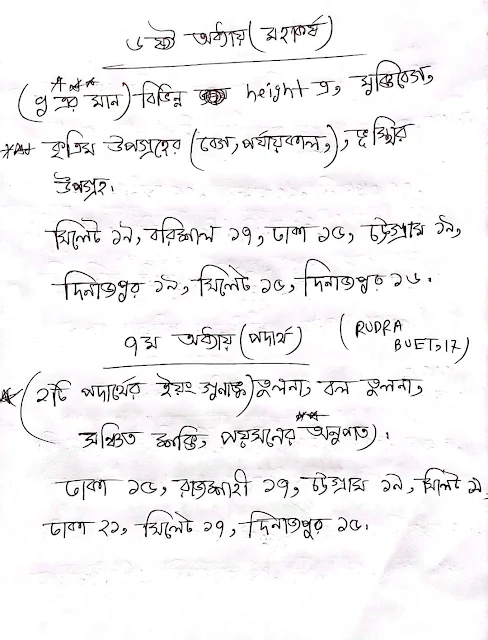 ৬ ষ্ঠ অধ্যায় (মহাকর্ষ)
(g এর মান) বিভিন্ন height এ, মুক্তিবেগ,
কৃত্রিম উপগ্রহের (বেগ, পর্যায়কাল,), ভূস্থির
উপগ্রহ।
সিলেট ১৯, বরিশাল ১৭, ঢাকা ১৫, চট্টগ্রাম ১৯,
দিনাজপুর ১৯, সিলেট ১৫, দিনাজপুর ১৬.
৭ম অধ্যায় (পদার্থ) (RUDRA
BUET,17)
(২টি পদার্থের ইয়ং গুনাঙ্ক) তুলনা, বল তুলনা,
সঞ্চিত শক্তি, পয়সনের অনুপাত).
ঢাকা ১৫, রাজশাহী ১৭, চট্টগ্রাম ১৯, সিলেট
ঢাকা ২১, সিলেট ১৭, দিনাজপুর ১৫.